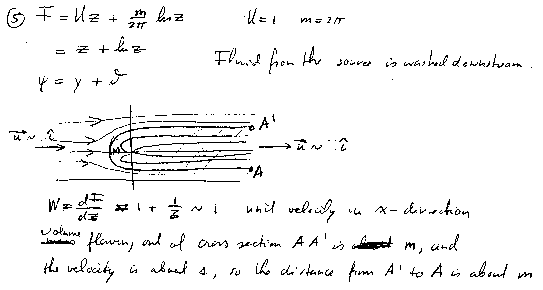 ⑤ F = Uz + m/2π ln z     U = 1   m = 2π
= z + ln z     Fluid from the source is washed downstream.
ψ = y + ϑ
A'
u ~ î     M     → u ~ î
A
W = dF/dz = 1 + 1/z ~ 1   unit velocity in x-direction
volume flowing out of cross section AA' is m, and
the velocity is about 1, so the distance from A' to A is about m